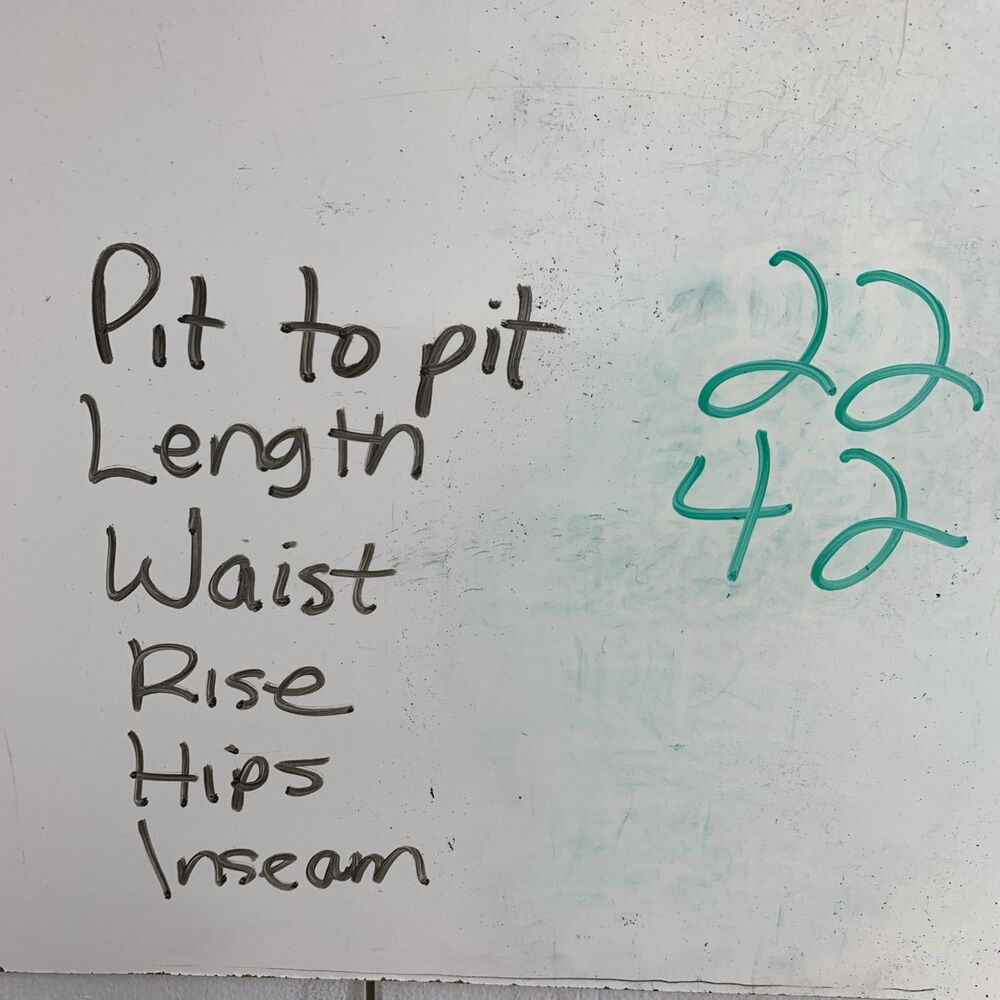 Pit to pit 22
Length 42
Waist
Rise
Hips
Inseam